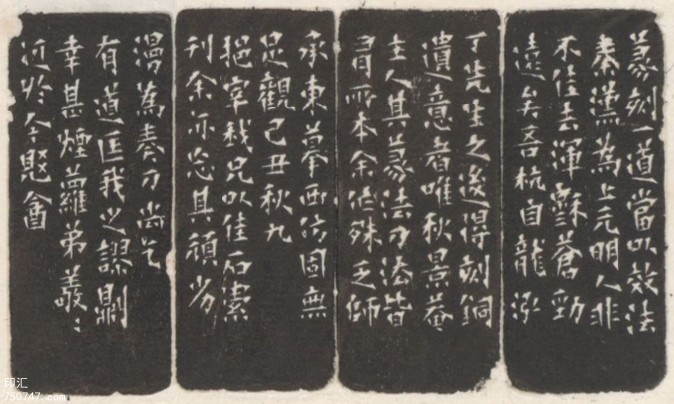 篆刻一道當以效法
秦漢為上元明人非
不佳去渾穌蒼勁
遠矣吾杭自龍泓
丁先生之後得刻銅
遺意者唯秋景菴
主人其篆法刀法皆
有所本余殊乏師
承東摹西仿固無
足觀己丑秋九
挹兄以佳石索
刊余亦忘其頑劣
漫為奏刀尚乞
有道匡我之謬則
幸甚煙蘿弟
近於
印汇
750747.com